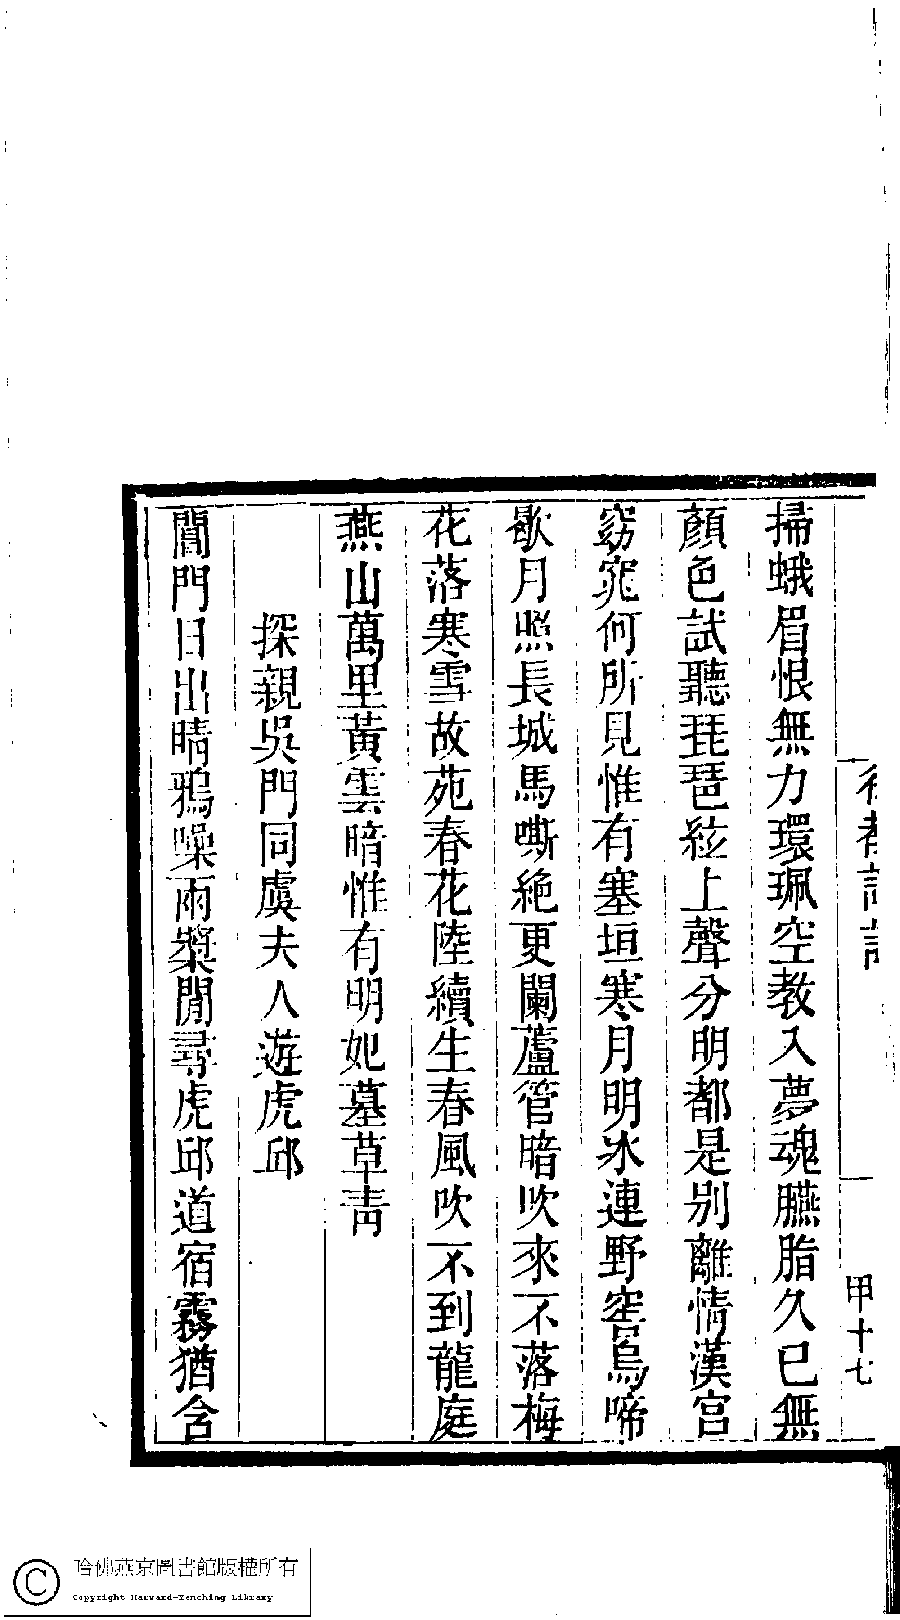 掃蛾眉恨無力環珮空教入夢魂臙脂久已無
顏色試聽琵琶絃上聲分明都是別離情漢宮
窈窕何所見惟有塞垣寒月明氷連野窖烏啼
歇月照長城馬嘶絶更闌蘆管暗吹來不落梅
花落寒雪故苑春花陸續生春風吹不到龍庭
燕山萬里黃雲暗惟有明妃墓草青
探親吳門同虞夫人遊虎邱
閶門日出晴鴉噪雨槳閒尋虎邱道宿霧猶含
甲十七
哈佛燕京圖書館版權所有
Copyright Harvard-Yenching Library